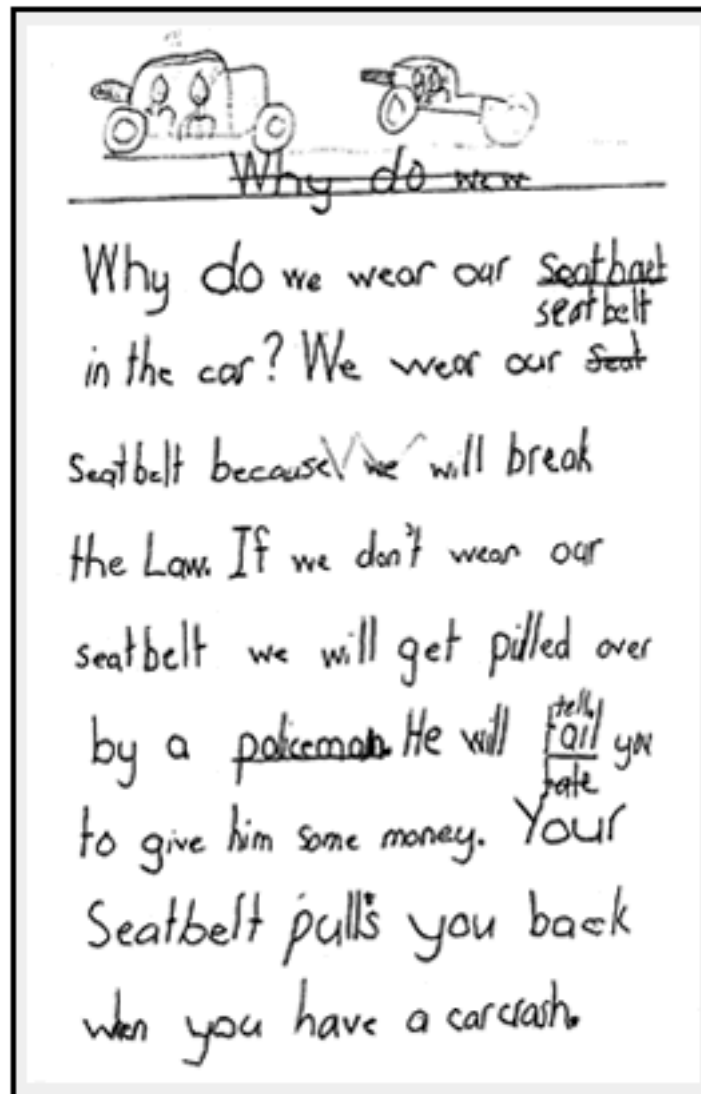 Why do wew
Why do we wear our seatbaet
seatbelt
in the car? We wear our seat
seatbelt because we will break
the Law. If we don't wear our
seatbelt we will get pilled over
tell
by a policeman. He will tail you
tale
to give him some money. Your
Seatbelt pulls you back
when you have a car crash.